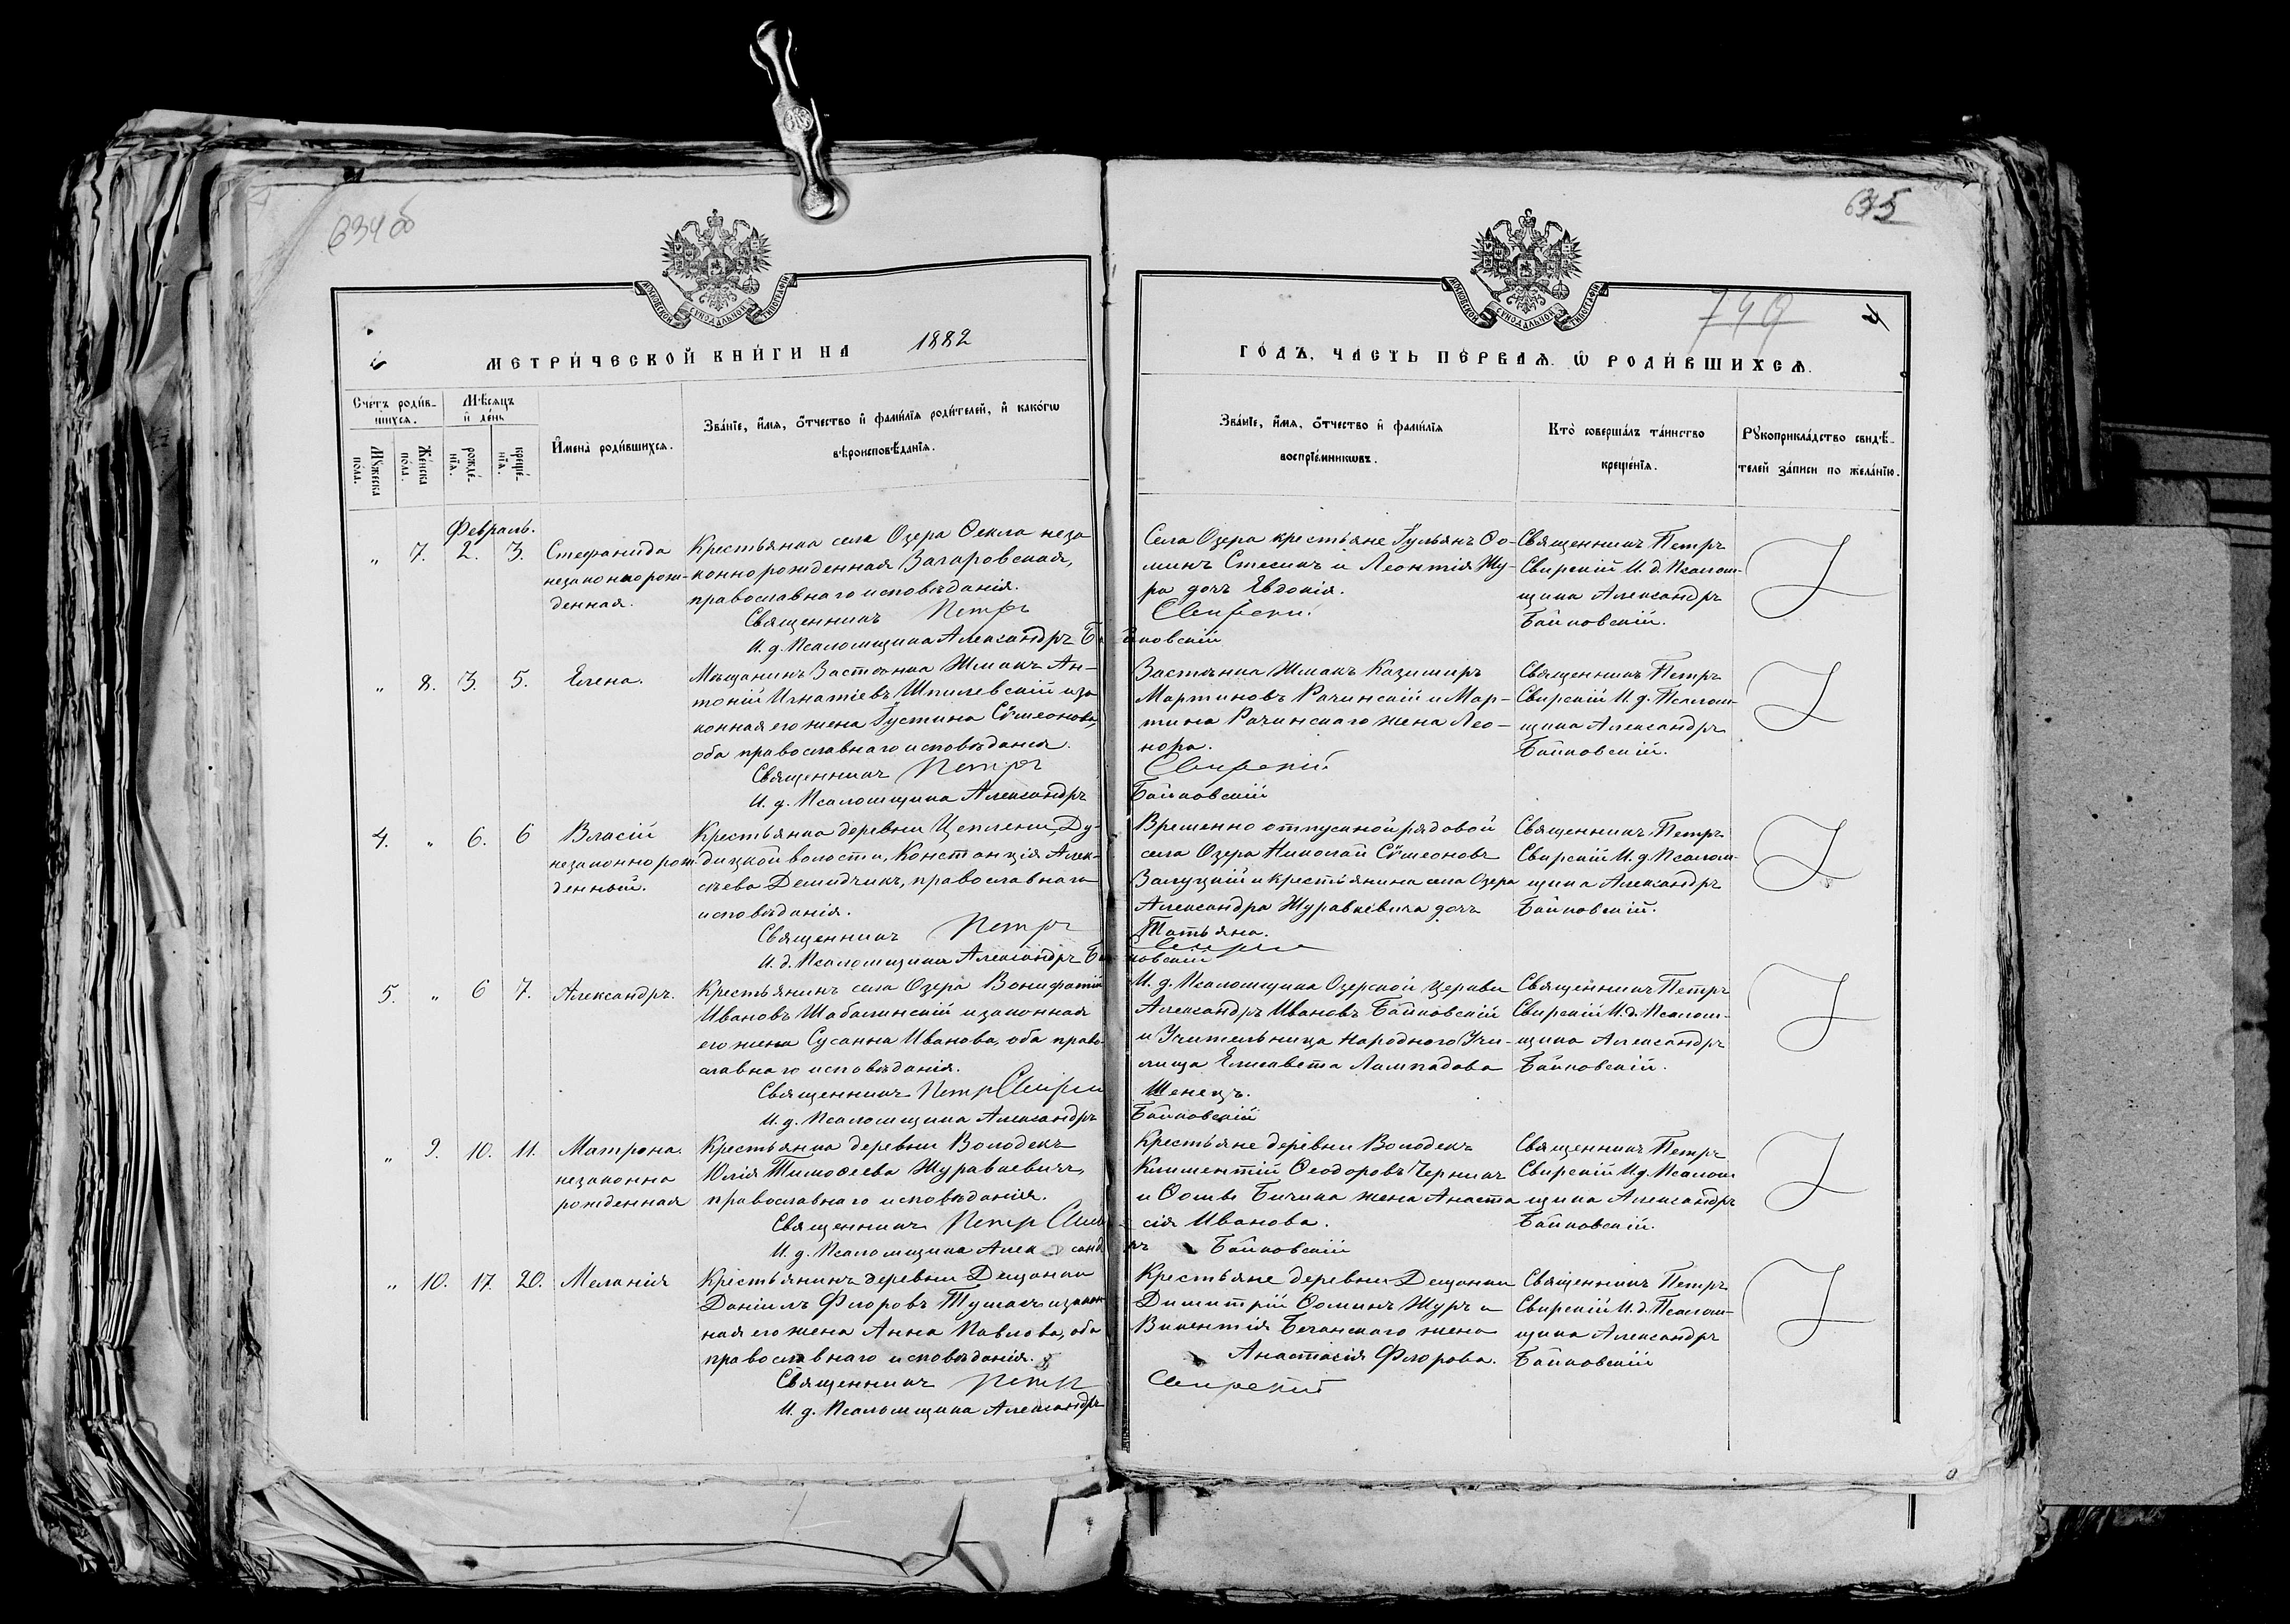 634 об
635
749
4
МОСКОВСКОЙ СѴНОДАЛЬНОЙ ТИПОГРАФІИ
МОСКОВСКОЙ СѴНОДАЛЬНОЙ ТИПОГРАФІИ
МЕТРИ́ЧЕСКОЙ КНИ́ГИ НА 1882
ГО́ДЪ, ЧАСТЬ ПЕ́РВАѦ. Ѡ РОДИ́ВШИХСѦ.
Счетъ роди́в-
шихсѧ.
Мꙋжеска по́ла.
Же́нска по́ла.
Мѣсѧцъ и де́нь
рожде́-
нїѧ.
креще́-
нїѧ.
Имена̀ роди́вшихсѧ.
Зва́нїе, и́мѧ, о́тчество и фами́лїѧ роди́телей, и како́гѡ
вѣроисповѣ́данїѧ.
Зва́нїе, и́мѧ, о́тчество и фами́лїѧ
воспрїе́мникѡвъ.
Кто̀ соверша́лъ та́инство
креще́нїѧ.
Рꙋкоприкла́дство свидѣ́-
телей за́писи по жела́нїю.
Февраль.
„ 7. 2. 3.
Стефанида
незаконнорож-
денная.
Крестьянка села Озера Ѳекла неза
коннорожденная Загаровская,
православнаго исповѣданія.
Священникъ Петръ
И. д. Псаломщика Александръ Бай
Села Озера крестьяне Іульянъ Ѳо-
минъ Стесикъ и Леонтія Жу-
ра дочь Евдокія.
Свирскій
ковскій
Священникъ Петръ
Свирскій И. д. Псалом-
щика Александръ
Байковскій.
„ 8. 3. 5.
Елена.
Мѣщанинъ Застѣнка Жмакъ Ан-
тоній Игнатіевъ Шпилевскій и за
конная его жена Іустина Сѵмеонова,
оба православнаго исповѣданія.
Священникъ Петръ
И. д. Псаломщика Александръ
Застѣнка Жмакъ Казимиръ
Мартиновъ Рачинскій и Мар-
тина Рачинскаго жена Лео-
нора.
Свирскій
Байковскій
Священникъ Петръ
Свирскій И. д. Псалом-
щика Александръ
Байковскій.
4. „ 6. 6
Власій
незаконнорож-
денный.
Крестьянка деревни Цеплени, Ду-
дицкой волости, Констанція Алек-
сѣева Демидчикъ, православнаго
исповѣданія.
Священникъ Петръ
И. д. Псаломщика Александръ Бай
Временно отпускной рядовой
села Озера Николай Сѵмеоновъ
Залуцкій и крестьянина села Озера
Александра Журавкевича дочь
Татьяна.
Свирскій
ковскій
Священникъ Петръ
Свирскій И. д. Псалом-
щика Александръ
Байковскій.
5. „ 6 7.
Александръ.
Крестьянинъ села Озера Вонифатій
Ивановъ Шабалинскій и законная
его жена Сусанна Иванова, оба право-
славнаго исповѣданія.
Священникъ Петръ Свирскій
И. д. Псаломщика Александръ
И. д. Псаломщика Озерской церкви
Александръ Ивановъ Байковскій
и Учительница Народнаго Учи-
лища Елисавета Лампадова
Шенецъ.
Байковскій
Священникъ Петръ
Свирскій И. д. Псалом-
щика Александръ
Байковскій.
„ 9. 10. 11.
Матрона.
незаконно
рожденная
Крестьянка деревни Володекъ
Юлія Тимоѳеева Журавкевичъ,
православнаго исповѣданія.
Священникъ Петръ Свир
И. д. Псаломщика Александ
Крестьяне деревни Володекъ
Климентій Ѳеодоровъ Черникъ
и Ѳомы Бичика жена Анаста
сія Иванова.
ръ Байковскій
Священникъ Петръ
Свирскій И. д. Псалом
щика Александръ
Байковскій.
„ 10. 17. 20.
Меланія
Крестьянинъ деревни Дещанки
Даніилъ Флоровъ Тумасъ и закон
ная его жена Анна Павлова, оба
православнаго исповѣданія.
Священникъ Петръ
И. д. Псаломщика Александръ
Крестьяне деревни Дещанки
Димитрій Ѳоминъ Журъ и
Викентія Беганскаго жена
Анастасія Флорова.
Свирскій
Священникъ Петръ
Свирскій И. д. Псалом-
щика Александръ
Байковскій